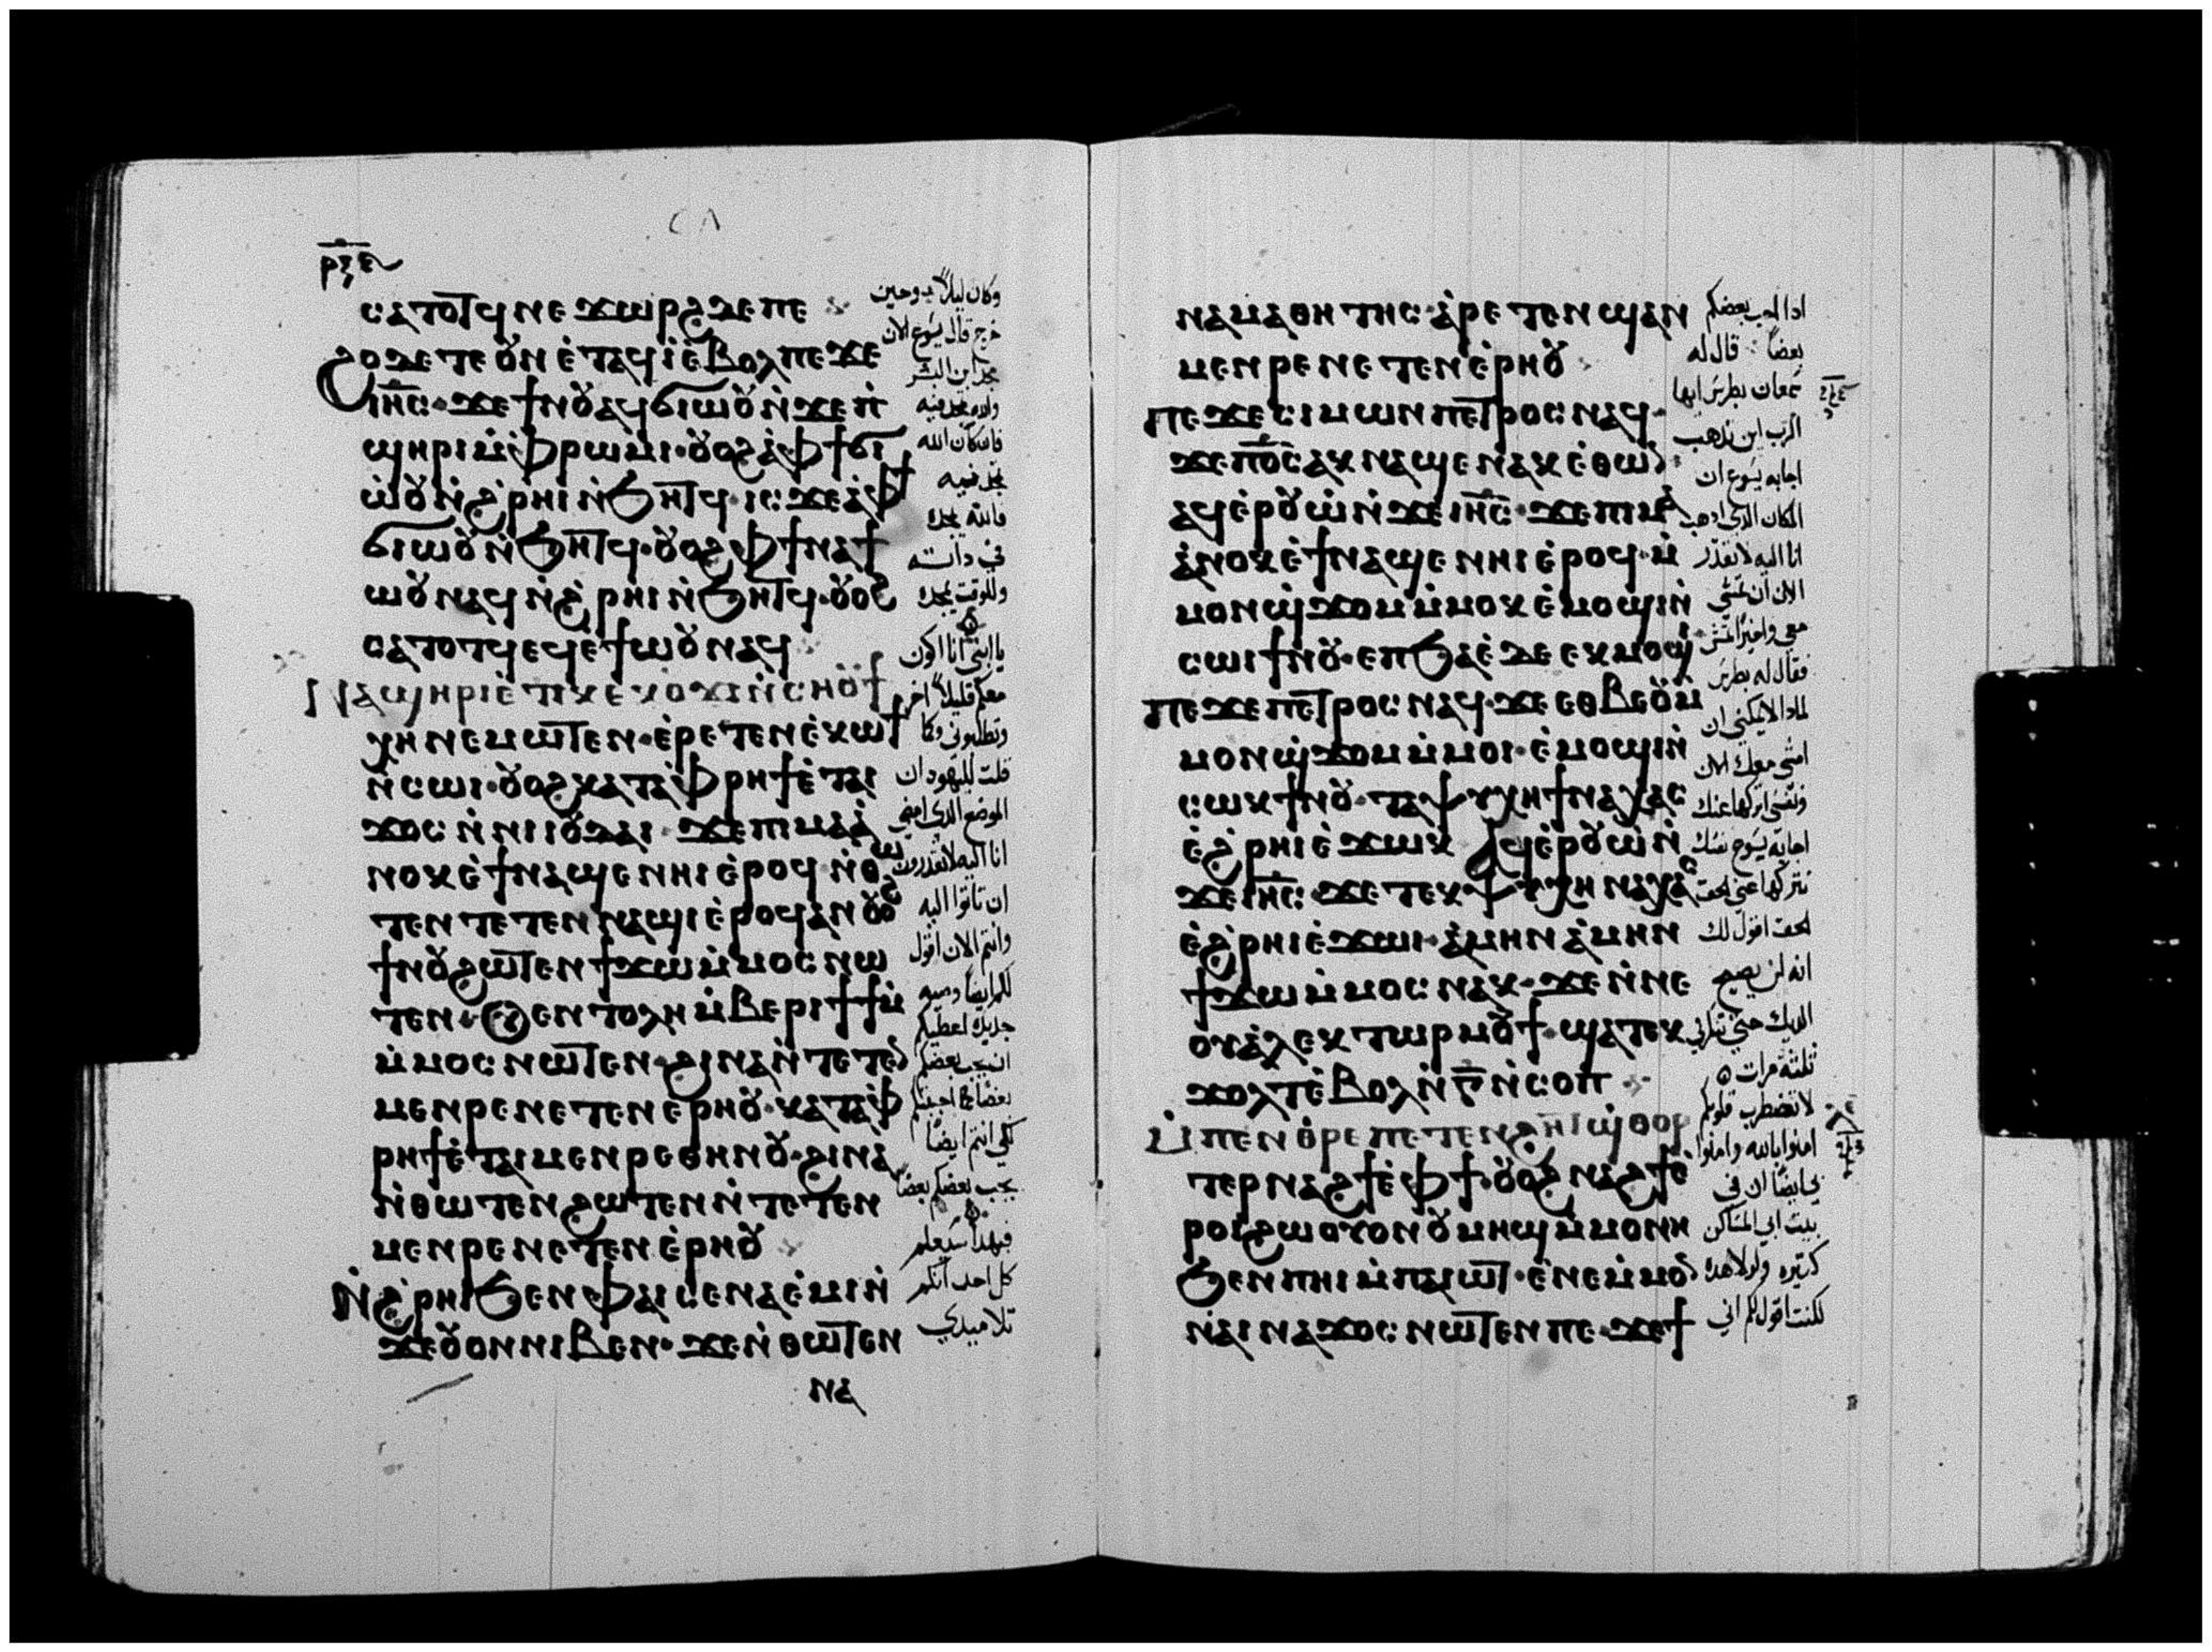 ⲣⲝⲉ
ⲥⲁⲧⲟⲧϥ ⲛⲉ ϫⲱⲣϩ ⲇⲉ ⲡⲉ
ϩⲟⲇⲉ ⲧⲉ ⲟⲩⲛ ⲉ̇ⲧⲁϥⲓ̇ ⲉ̇ⲃⲟⲗ ⲡⲉϫⲉ
ⲓⲏ̅ⲥ̅ · ϫⲉ ϯⲛⲟⲩ ⲁϥϭⲓⲱⲟⲩ ⲛ̇ϫⲉ ⲡ̇
ϣⲏⲣⲓ ⲙ̇ⲫ̇ⲣⲱⲙⲓ · ⲟⲩⲟϩ ⲁ̇ⲫϯ ϭⲓ
ⲱ̇ⲟⲩ ⲛ̇ϩ̇ⲣⲏⲓ ⲛ̇ϧⲏⲧϥ · ⲓⲥϫⲉ ⲁ̇ⲫϯ
ϭⲓⲱⲟⲩ ⲛ̇ϧⲏⲧϥ · ⲟⲩⲟϩ ⲫϯ ⲛⲁϯ
ⲱⲟⲩ ⲛⲁϥ ⲛ̇ϩ̇ⲣⲏⲓ ⲛ̇ϧⲏⲧϥ · ⲟⲩⲟϩ
ⲥⲁⲧⲟⲧϥ ⲉϥⲉ̇ϯⲱⲟⲩ ⲛⲁϥ
ⲛⲁϣⲏⲣⲓ ⲉ̇ⲧⲓ ⲕⲉⲕⲟⲩϫⲓ ⲛ̇ⲥⲏⲟⲩ ϯ
ⲭⲏ ⲛⲉⲙⲱⲧⲉⲛ · ⲉ̇ⲣⲉⲧⲉⲛⲉ̇ⲕⲱϯ
ⲛ̇ⲥⲱⲓ · ⲟⲩⲟϩ ⲕⲁⲧⲁ̇ⲫⲣⲏϯ ⲉ̇ⲧⲁⲓ
ϫⲟⲥ ⲛ̇ⲛⲓⲓⲟⲩⲇⲁⲓ · ϫⲉ ⲡⲓⲙⲁ ⲁ̇
ⲛⲟⲕ ⲉ̇ϯⲛⲁϣⲉ ⲛⲏⲓ ⲉ̇ⲣⲟϥ ⲛ̇ⲑⲱ
ⲧⲉⲛ ⲧⲉⲧⲉⲛⲛⲁϣⲓ̇ ⲉ̇ⲣⲟϥ ⲁⲛ ⲟⲩⲟϩ
ϯⲛⲟⲩ ϩⲱⲧⲉⲛ ϯϫⲱ ⲙ̇ⲙⲟⲥ ⲛⲱ
ⲧⲉⲛ · ⲟⲩⲉⲛⲧⲟⲗⲏ ⲙ̇ⲃⲉⲣⲓ ϯϯ ⲙ̇
ⲙ̇ⲙⲟⲥ ⲛⲱⲧⲉⲛ · ϩⲓⲛⲁ ⲛ̇ⲧⲉⲧⲉⲛ
ⲙⲉⲛⲣⲉ ⲛⲉⲧⲉⲛⲉ̇ⲣⲏⲟⲩ · ⲕⲁⲧⲁ̇ⲫ
ⲣⲏϯ ⲉ̇ⲧⲁⲓⲙⲉⲛⲣⲉ ⲑⲏⲛⲟⲩ · ϩⲓⲛⲁ
ⲛ̇ⲑⲱⲧⲉⲛ ϩⲱⲧⲉⲛ ⲛ̇ⲧⲉⲧⲉⲛ
ⲙⲉⲛⲣⲉ ⲛⲉⲧⲉⲛⲉ̇ⲣⲏⲟⲩ
ⲛ̇ϩ̇ⲣⲏⲓ ϧⲉⲛ ⲫⲁⲓ ⲥⲉⲛⲁⲉ̇ⲙⲓ ⲛ̇
ϫⲉ ⲟⲩⲟⲛ ⲛⲓⲃⲉⲛ · ϫⲉ ⲛ̇ⲑⲱⲧⲉⲛ
ⲛⲁ
وكان ليلا
خرج قال يسوع الان
مجد ابن البشر
والله مجد فيه
فان كان الله
مجد فيه
فالله يمجده
في ذاته
وللوقت يمجده
يا ابني انا اكون
معكم قليلا اخر
وتطلبوني وكما
قلت لليهود ان
الموضع الذي امضي
انا اليه لا تقدرون
ان تأتوا اليه
وانتم الان اقول
لكم ايضا وصيه
جديدة اعطيكم
ان يحب بعضكم
بعضا كما احببتكم
لكي انتم ايضا
يحب بعضكم بعضا
فبهذا سيعلم
كل احد انكم
تلاميذي
ⲛⲁⲙⲁⲑⲏⲧⲏⲥ · ⲁ̇ⲣⲉⲧⲉⲛϣⲁⲛ
ⲙⲉⲛⲣⲉ ⲛⲉⲧⲉⲛⲉ̇ⲣⲏⲟⲩ
ⲡⲉϫⲉ ⲥⲓⲙⲱⲛ ⲡⲉⲧⲣⲟⲥ ⲛⲁϥ ·
ϫⲉ ⲡⲟ̅ⲥ̅ ⲁⲕⲛⲁϣⲉ ⲛⲁⲕ ⲉ̇ⲑⲱⲛ
ⲁϥⲉ̇ⲣⲟⲩⲱ̇ ⲛ̇ϫⲉ ⲓⲏ̅ⲥ̅ · ϫⲉ ⲡⲓⲙⲁ
ⲁ̇ⲛⲟⲕ ⲉ̇ϯⲛⲁϣⲉ ⲛⲏⲓ ⲉ̇ⲣⲟϥ · ⲙ̇
ⲙⲟⲛ ϣ̇ϫⲟⲙ ⲙ̇ⲙⲟⲕ ⲉ̇ⲙⲟϣⲓ ⲛ̇
ⲥⲱⲓ ϯⲛⲟⲩ · ⲉⲡϧⲁⲉ̇ ⲇⲉ ⲉⲕⲙⲟϣⲓ
ⲡⲉϫⲉ ⲡⲉⲧⲣⲟⲥ ⲛⲁϥ · ϫⲉ ⲉⲑⲃⲉⲟⲩ ⲙ̇
ⲙⲟⲛ ϣ̇ϫⲟⲙ ⲙ̇ⲙⲟⲓ · ⲉ̇ⲙⲟϣⲓ ⲛ̇
ⲥⲱⲕ ϯⲛⲟⲩ · ⲧⲁⲯⲩⲭⲏ ϯⲛⲁⲭⲁⲥ
ⲉ̇ϩ̇ⲣⲏⲓ ⲉ̇ϫⲱⲕ ⲁϥⲉ̇ⲣⲟⲩⲱ̇ ⲛ̇
ϫⲉ ⲓⲏ̅ⲥ̅ · ϫⲉ ⲧⲉⲕⲯⲩⲭⲏ ⲭⲛⲁⲭⲁⲥ
ⲉ̇ϩ̇ⲣⲏⲓ ⲉ̇ϫⲱⲓ · ⲁ̇ⲙⲏⲛ ⲁ̇ⲙⲏⲛ
ϯϫⲱ ⲙ̇ⲙⲟⲥ ⲛⲁⲕ · ϫⲉ ⲛ̇ⲛⲉ
ⲟⲩⲁ̇ⲗⲉⲕⲧⲱⲣ ⲙⲟⲩϯ · ϣⲁⲧⲉⲕ
ϫⲟⲗⲧ ⲉ̇ⲃⲟⲗ ⲛ̇ⲅ̅ ⲛ̇ⲥⲟⲡ
ⲙ̇ⲡⲉⲛⲑ̇ⲣⲉ ⲡⲉⲧⲉⲛϩⲏⲧ ϣ̇ⲑⲟⲣ
ⲧⲉⲣ ⲛⲁϩϯ ⲉ̇ⲫϯ · ⲟⲩⲟϩ ⲛⲁϩϯ ⲉ̇
ⲣⲟⲓ ϩⲱ ⲟⲩⲟⲛ ⲟⲩⲙⲏϣ ⲙ̇ⲙⲟⲛⲏ
ϧⲉⲛ ⲡⲏⲓ ⲙ̇ⲡⲁⲓⲱⲧ · ⲉ̇ⲛⲉ ⲙ̇ⲙⲟⲛ
ⲛ̇ⲁⲓⲛⲁϫⲟⲥ ⲛⲱⲧⲉⲛ ⲡⲉ · ϫⲉ ϯ
اذا احب بعضكم
بعضا قال له
سمعان بطرس ايها
الرب اين تذهب
اجابه يسوع ان
المكان الذي اذهب
انا اليه لا تقدر
الان ان تمشي
معي واخيرا
فقال له بطرس
لماذا لا يمكنني ان
امشي معك الان
ونفسي اتركها عنك
اجابه يسوع نفسك
تتركها عني الحق
الحق اقول لك
انه لن يصيح
الديك حتى تنكرني
ثلثة مرات
لا تضطرب قلوبكم
امنوا بالله وامنوا
بي ايضا ان في
بيت ابي المساكن
كثيره ولولا هذه
لكنت اقول لكم اني